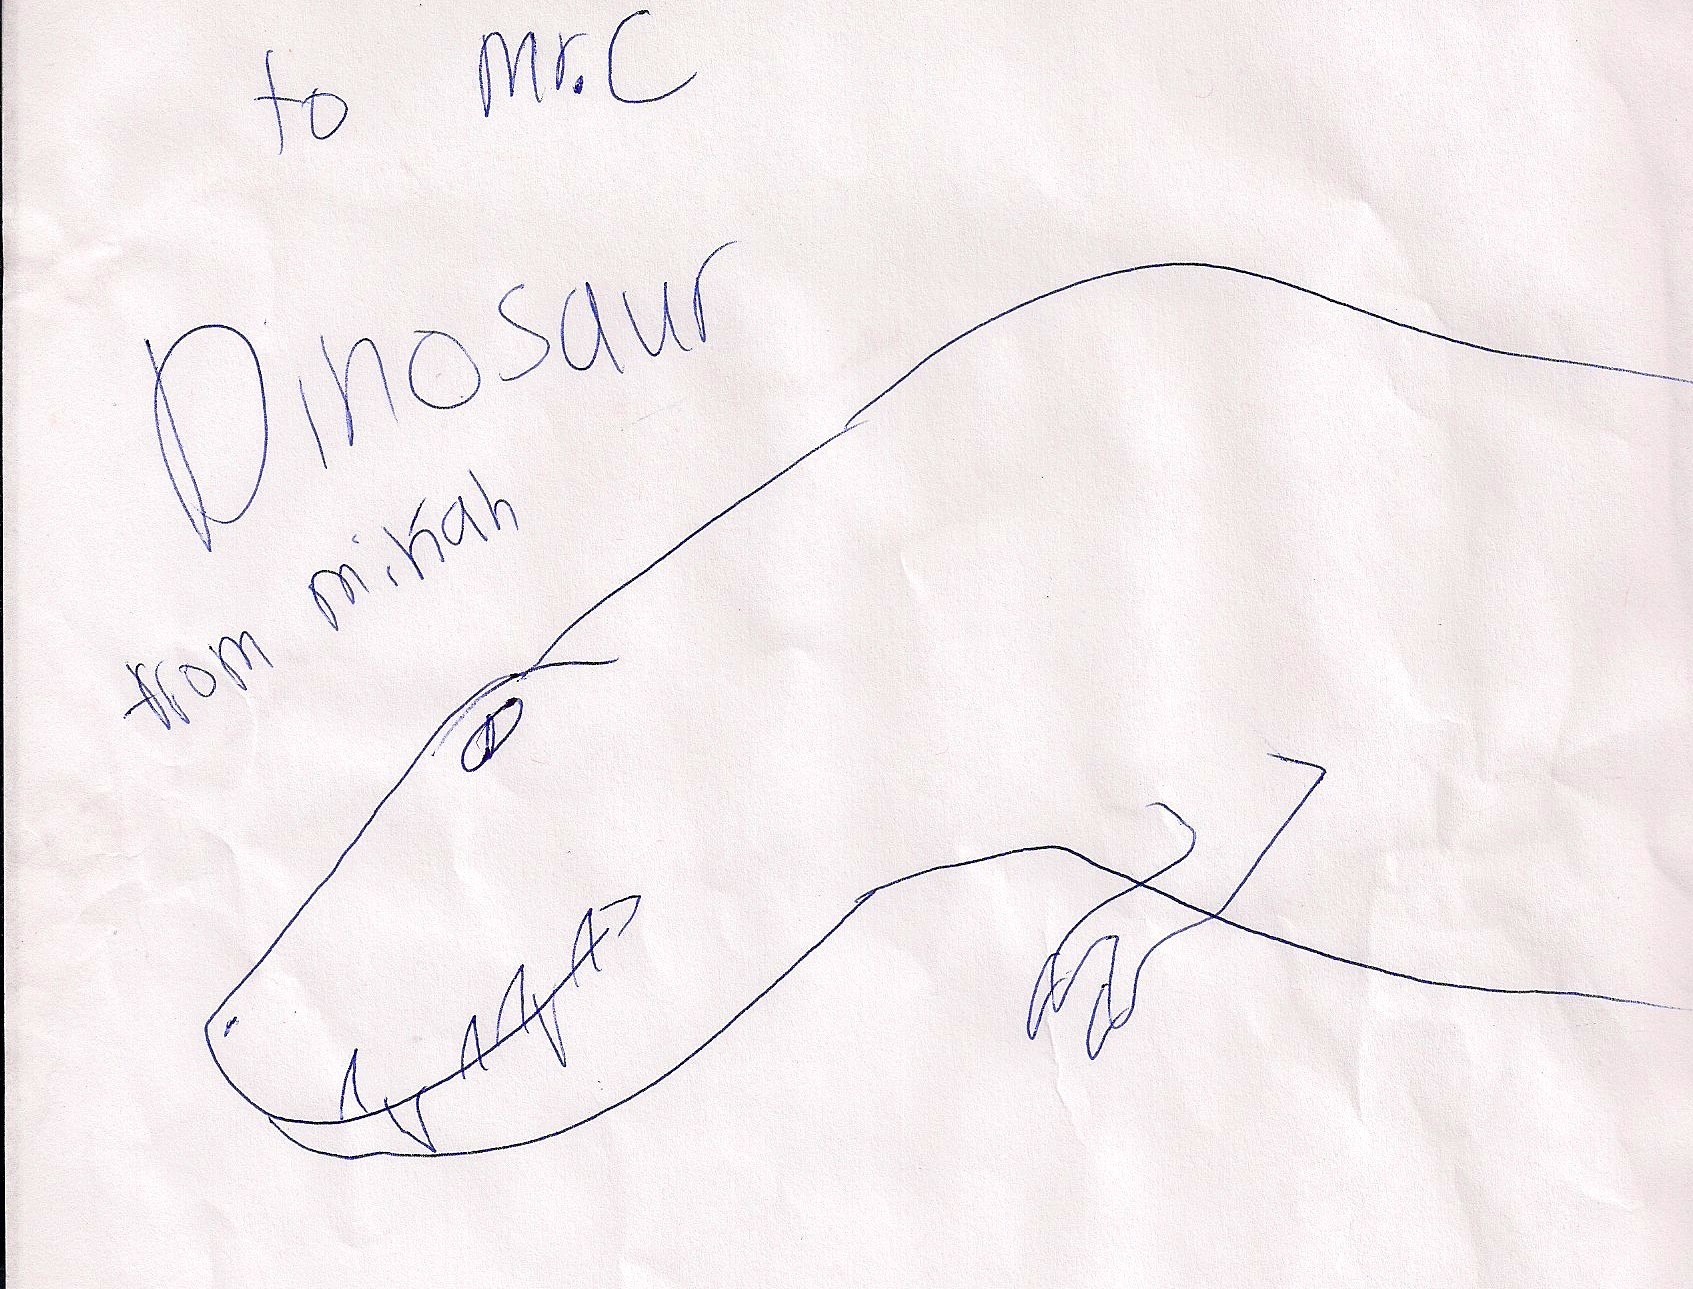 to Mr. C
Dinosaur
from mikah